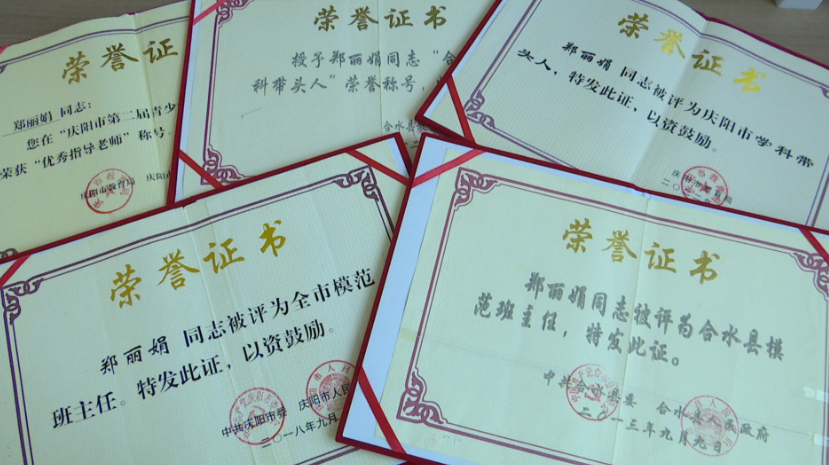 荣誉证
郑丽娟 同志:
您在“庆阳市第二届青少
荣获“优秀指导老师”称号。
庆阳市教育局
荣誉证书
授予郑丽娟同志“合
科带头人”荣誉称号,
合水县
荣誉证书
郑丽娟 同志被评为庆阳市学科带
头人,特发此证,以资鼓励。
荣誉证书
郑丽娟 同志被评为全市模范
班主任。特发此证,以资鼓励。
中共庆阳市委 庆阳市人民
二〇一八年九月
荣誉证书
郑丽娟同志被评为合水县模
范班主任,特发此证。
中共合水县委 合水县人民政府
二〇一三年九月九日